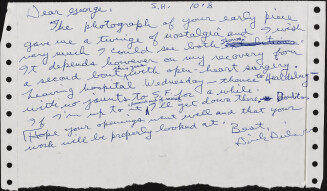 Dear George, S.H. 10/8
The photograph of your early piece
gave me a twinge of nostalgia and I wish
very much I could see both
It depends however on my recovery from
a second bout with open-heart surgery.
Leaving hospital Wednesday – thence to
with no jaunts to S.F. for a while.
If I'm up to it I'll get down there
Hope your openings went well and that your
work will be properly looked at.
Best,